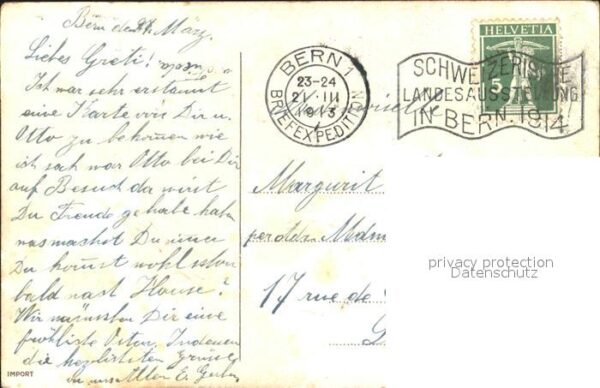 Bern den 21. März.
Liebes Greti!
Ich war sehr erstaunt
eine Karte von Dir u.
Otto zu bekommen wie
ich sah war Otto bei Dir
auf Besuch da wirst
Du Freude gehabt haben
was machst Du immer
Du kommst wohl schon
bald nach Hause?
Wir wünschen Dir eine
fröhliche Ostern. Indessen
die herzlichsten Grüsse
von uns Allen E. Gerber
IMPORT
BERN 1
23-24
21 III
1913
BRIEFEXPEDITION
HELVETIA
5
SCHWEIZERISCHE
LANDESAUSSTELLUNG
IN BERN. 1914
Margurit
Mdm
17 rue de
privacy protection
Datenschutz